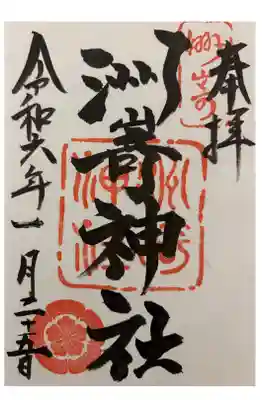 奉拝
洲嵜神社
令和六年一月二十五日